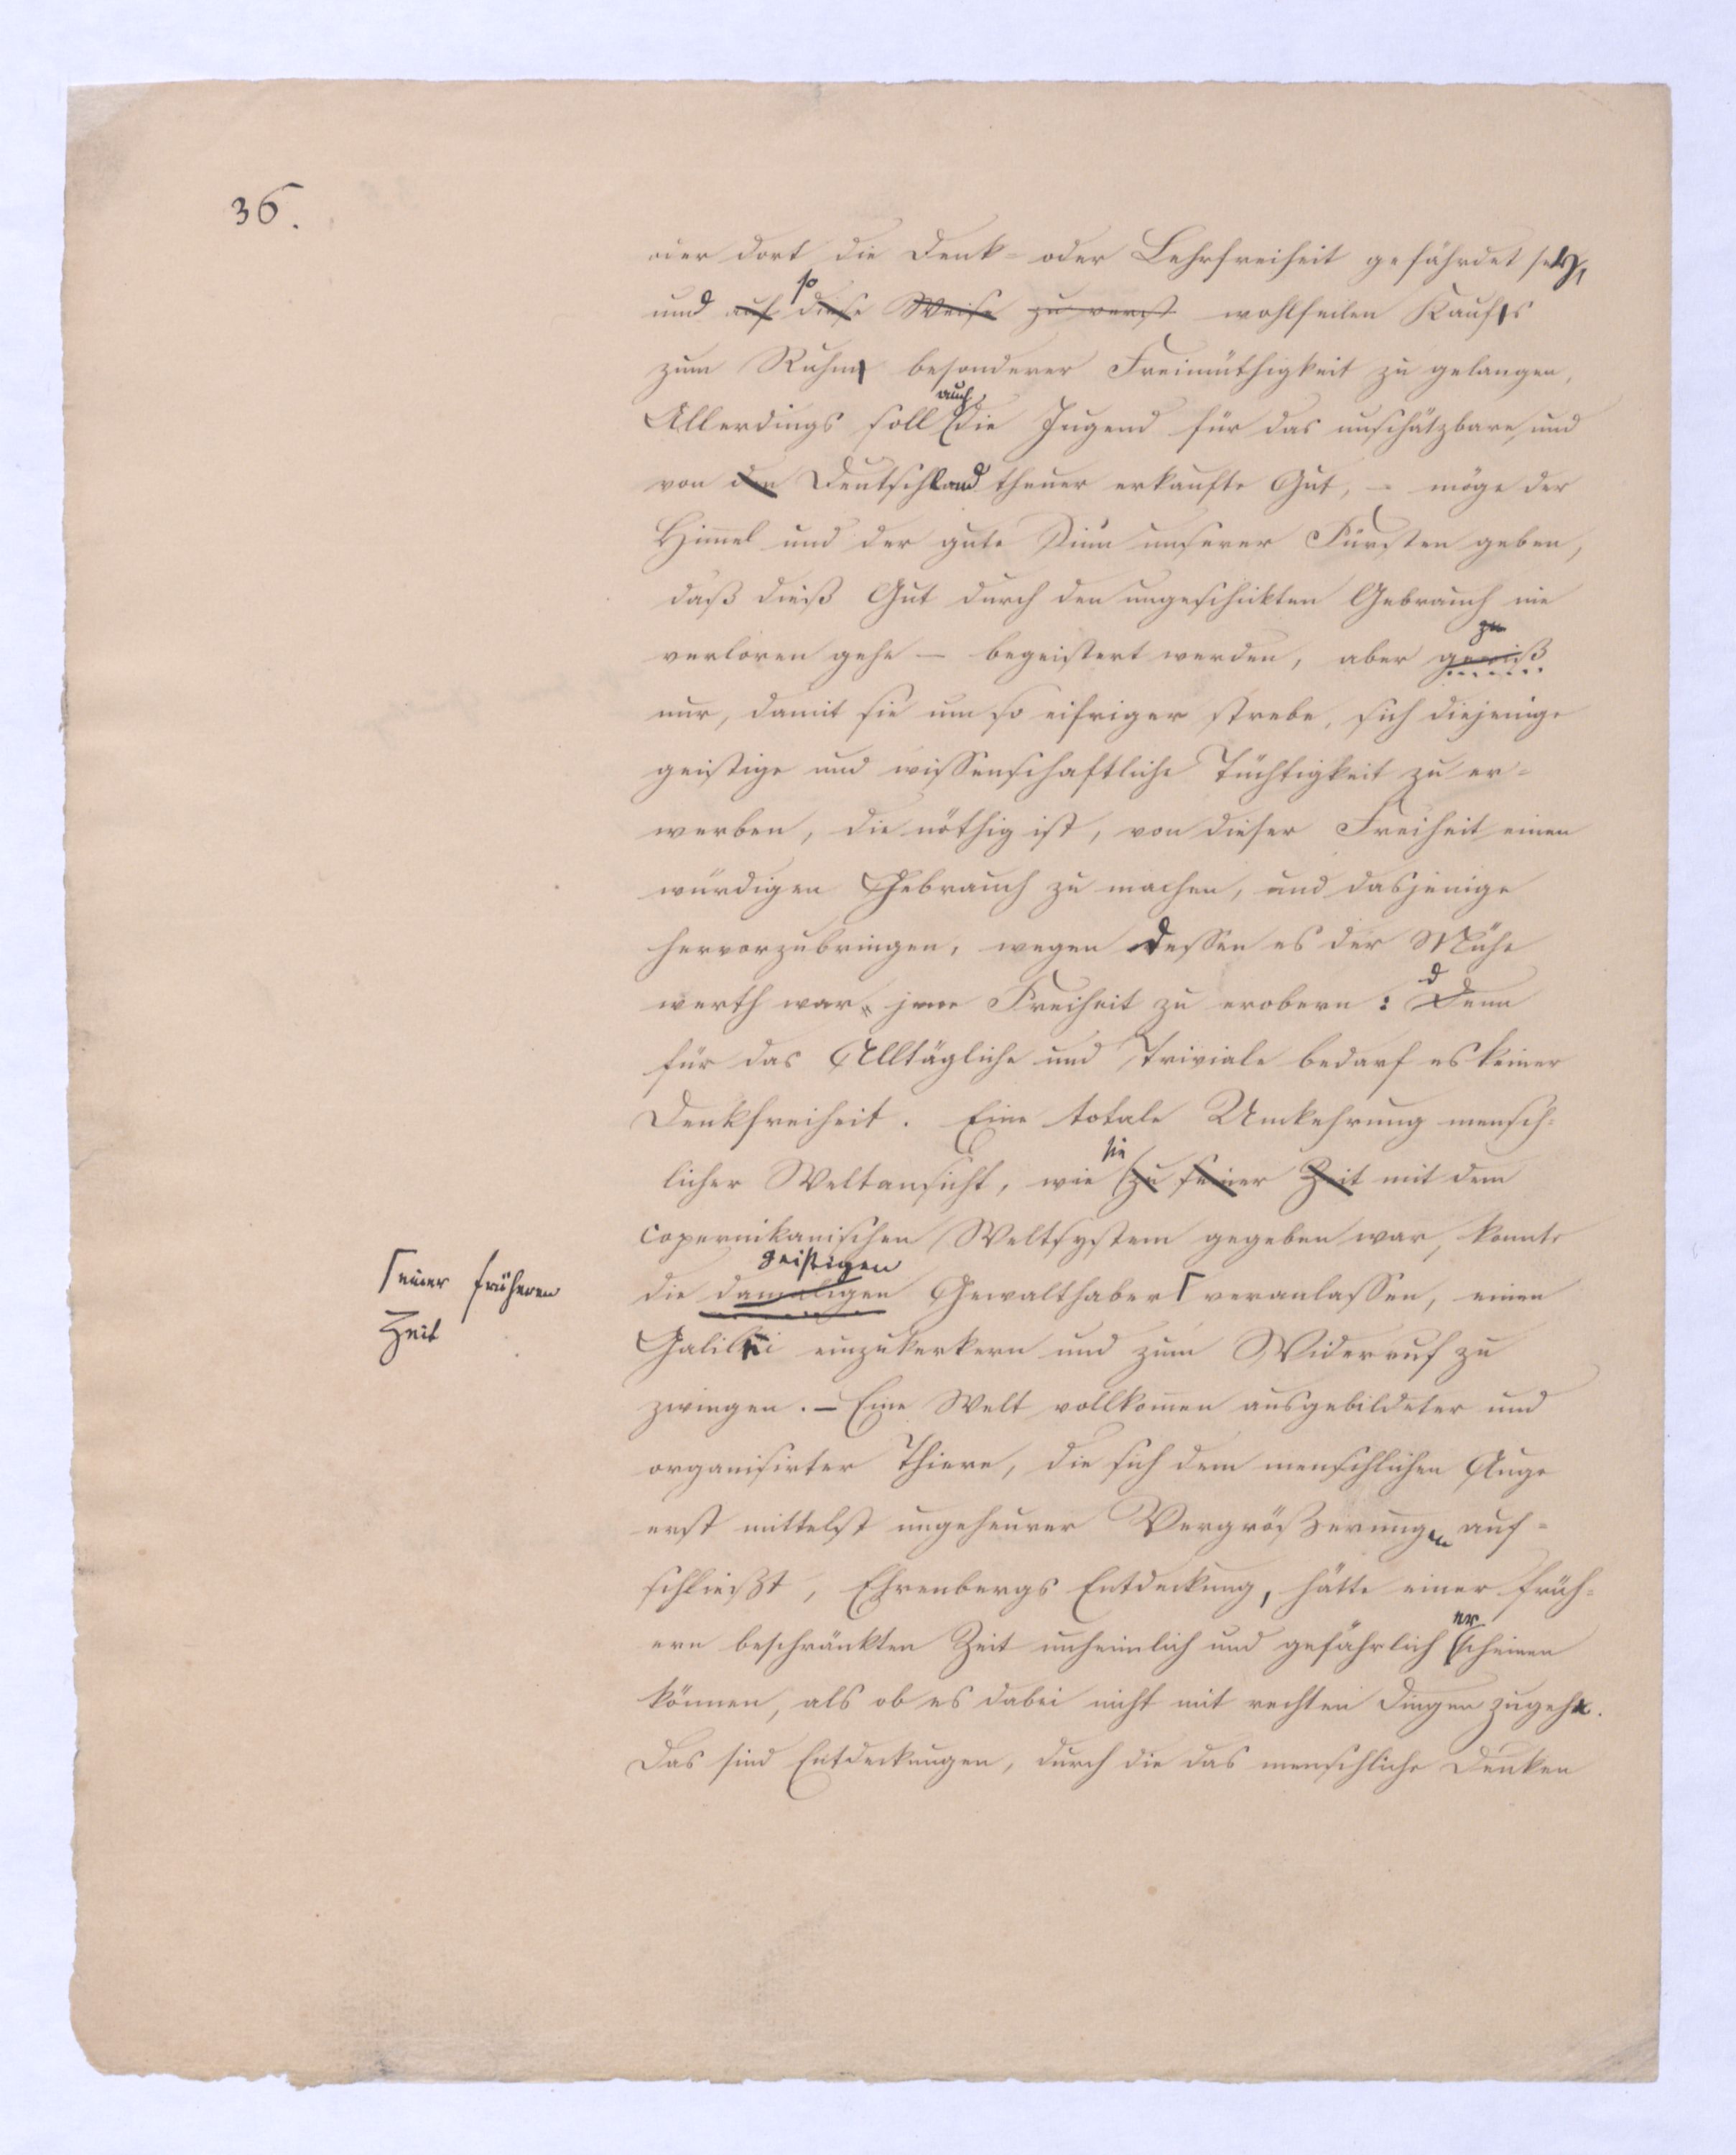 36.
oder dort die Denk- oder Lehrfreiheit gefährdet sey,
so
und auf diese Weise zu verst wohlfeilen Kaufs
zum Ruhm besonderer Freimüthigkeit zu gelangen,
auch
Allerdings soll die Jugend für das unschätzbare und
von den Deutschland theuer erkaufte Gut, – möge der
Him̄el und der gute Sinn unserer Fürsten geben,
daß dieß Gut durch den ungeschickten Gebrauch nie
zu
verloren gehe – begeistert werden, aber gewiß
nur, damit sie um so eifriger strebe, sich diejenige
geistige und wissenschaftliche Tüchtigkeit zu er-
werben, die nöthig ist, von dieser Freiheit einen
würdigen Gebrauch zu machen, und dasjenige
hervorzubringen, wegen dessen es der Mühe
d
werth war, jene Freiheit zu erobern: Denn
für das Alltägliche und Triviale bedarf es keiner
Denkfreiheit. Eine totale Umkehrung mensch-
sie
licher Weltansicht, wie zu seiner Zeit mit dem
copernikanischen Weltsystem gegeben war, konnte
geistigen
die damaligen Gewalthaber⌈ veranlassen, einen
⌈einer früheren
Zeit
Galilei einzukerkern und zum Widerruf zu
zwingen. – Eine Welt vollkom̄en ausgebildeter und
organisirter Thiere, die sich dem menschlichen Auge
erst mittelst ungeheurer Vergrößerungen auf-
schließt, Ehrenbergs Entdeckung, hätte einer früh-
er
ern beschränkten Zeit unheimlich und gefährlich scheinen
können, als ob es dabei nicht mit rechten Dingen zugehe.
Das sind Entdeckungen, durch die das menschliche Denken